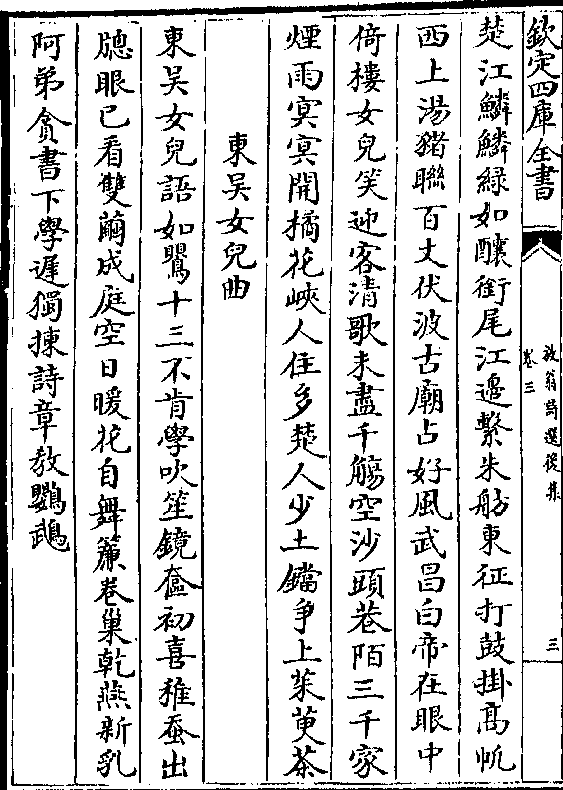 欽定四庫全書
放翁詩選後集
卷三
三
楚江鱗鱗綠如釀銜尾江邊繫朱舫東征打鼓掛高帆
西上湯豬聯百丈伏波古廟占好風武昌白帝在眼中
倚樓女兒笑迎客清歌未盡千觴空沙頭巷陌三千家
煙雨冥冥開橘花峽人住多楚人少土鐺爭上茱萸茶
東吳女兒曲
東吳女兒語如鶯十三不肯學吹笙鏡奩初喜稚蚕出
牕眼已看雙繭成庭空日暖花自舞簾卷巢乾燕新乳
阿弟貪書下學遲獨揀詩章教鸚鵡